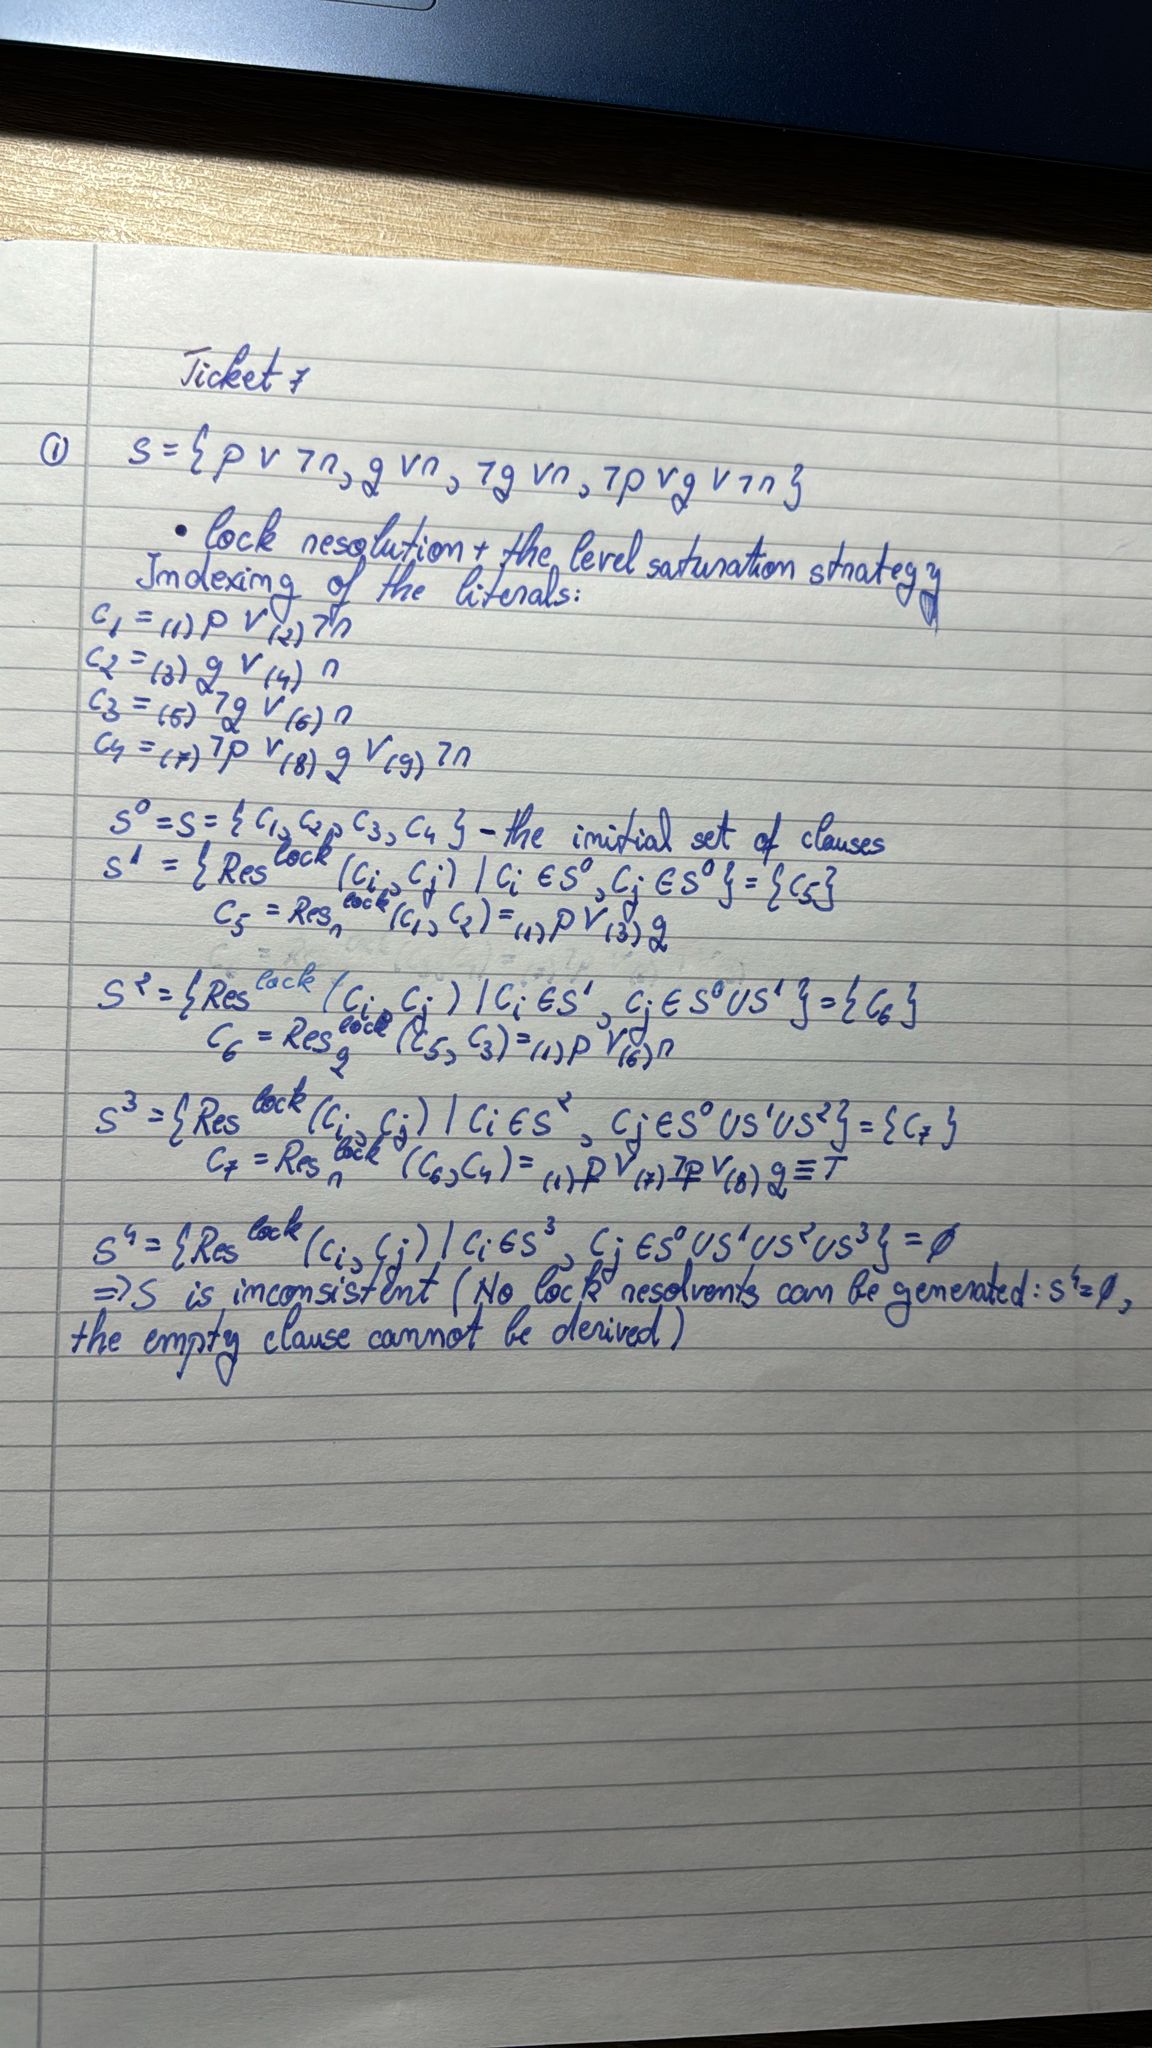 Ticket 7
① S = { p ∨ ¬r, q ∨ r, ¬q ∨ r, ¬p ∨ q ∨ ¬r }
• lock resolution + the level saturation strategy
Indexing of the literals:
C₁ = (1) p ∨ (2) ¬r
C₂ = (3) q ∨ (4) r
C₃ = (5) ¬q ∨ (6) r
C₄ = (7) ¬p ∨ (8) q ∨ (9) ¬r
S⁰ = S = { C₁, C₂, C₃, C₄ } - the initial set of clauses
S¹ = { Res^lock (Cᵢ, Cⱼ) | Cᵢ ∈ S⁰, Cⱼ ∈ S⁰ } = {C₅}
C₅ = Res_r^lock (C₁, C₂) = (1) p ∨ (3) q
S² = { Res^lock (Cᵢ, Cⱼ) | Cᵢ ∈ S¹, Cⱼ ∈ S⁰ ∪ S¹ } = {C₆}
C₆ = Res_q^lock (C₅, C₃) = (1) p ∨ (6) r
S³ = { Res^lock (Cᵢ, Cⱼ) | Cᵢ ∈ S², Cⱼ ∈ S⁰ ∪ S¹ ∪ S² } = {C₇}
C₇ = Res_r^lock (C₆, C₄) = (1) p ∨ (7) ¬p ∨ (8) q ≡ T
S⁴ = { Res^lock (Cᵢ, Cⱼ) | Cᵢ ∈ S³, Cⱼ ∈ S⁰ ∪ S¹ ∪ S² ∪ S³ } = ∅
=> S is inconsistent (No lock resolvents can be generated: S⁴ = ∅,
the empty clause cannot be derived)